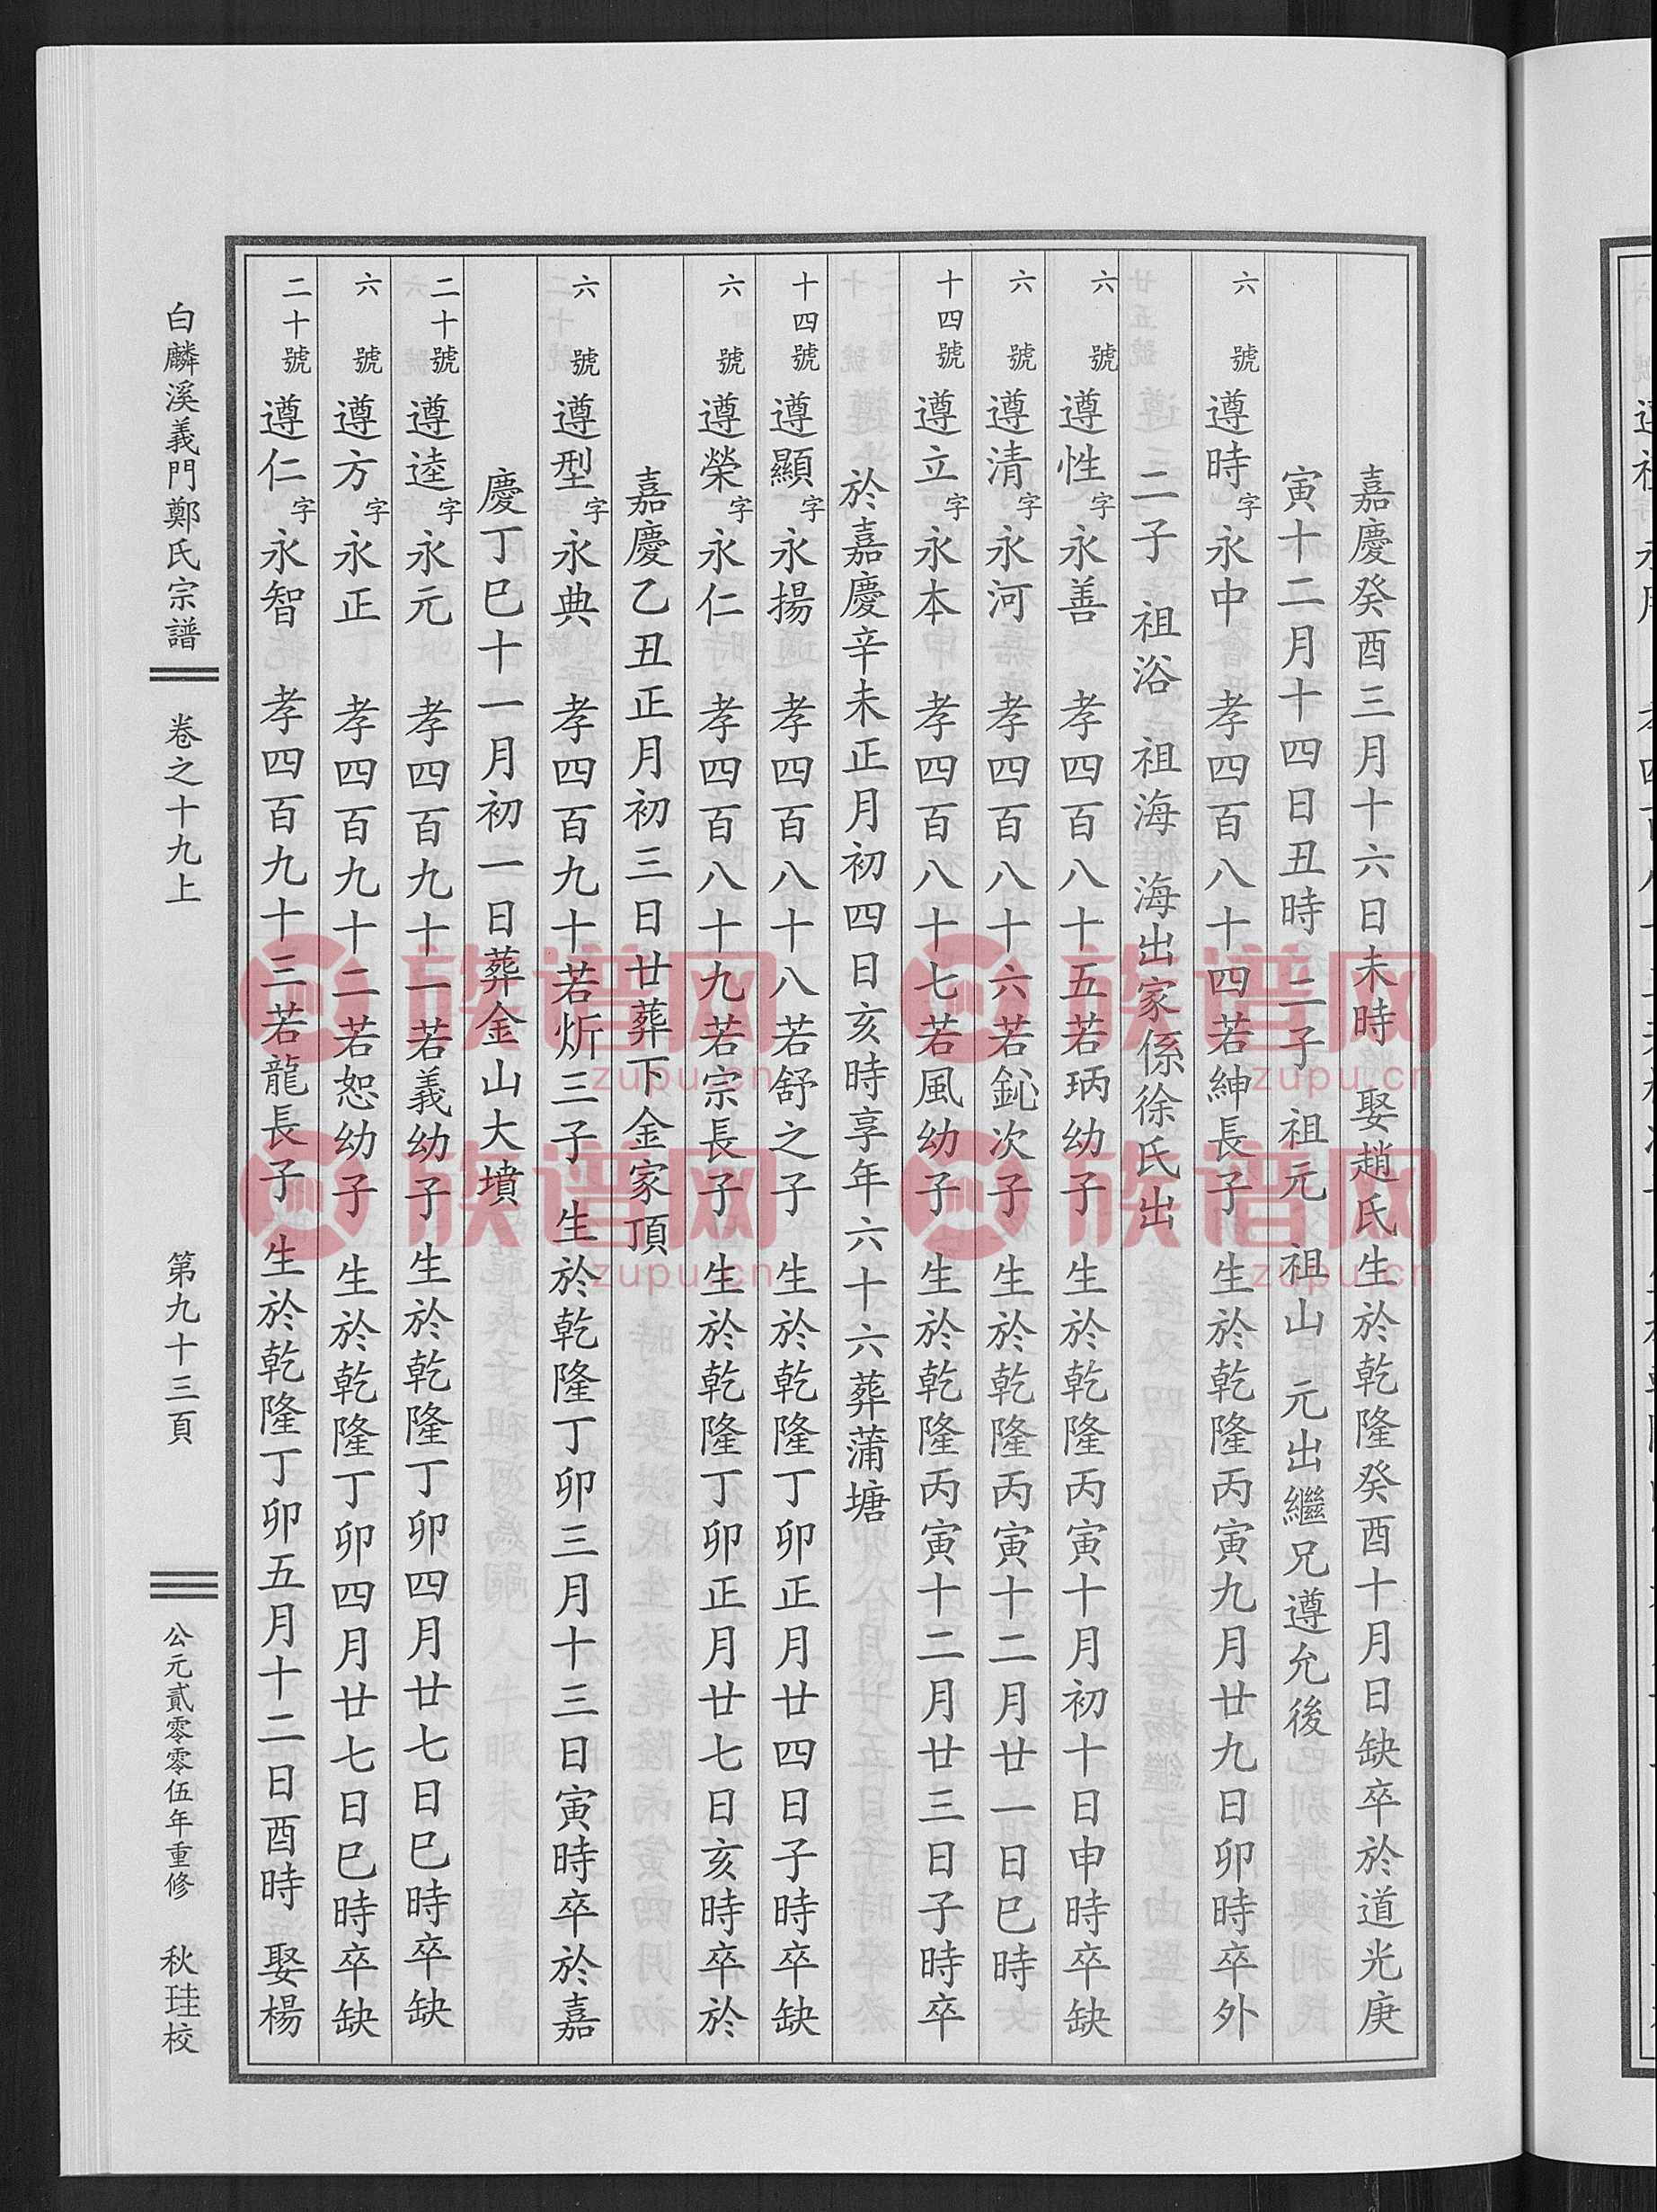 嘉慶癸酉三月十六日未時 娶趙氏生於乾隆癸酉十月日缺卒於道光庚
寅十二月十四日丑時 二子 祖元 祖山 元出繼兄遵允後
六號 遵時字永中 孝四百八十四若紳長子 生於乾隆丙寅九月廿九日卯時卒外
二子 祖浴 祖海 海出家係徐氏出
六號 遵性字永善 孝四百八十五若昞幼子 生於乾隆丙寅十月初十日申時卒缺
六號 遵清字永河 孝四百八十六若鈊次子 生於乾隆丙寅十二月廿一日巳時
十四號 遵立字永本 孝四百八十七若風幼子 生於乾隆丙寅十二月廿三日子時卒
於嘉慶辛未正月初四日亥時享年六十六葬蒲塘
十四號 遵顯字永揚 孝四百八十八若舒之子 生於乾隆丁卯正月廿四日子時卒缺
六號 遵榮字永仁 孝四百八十九若宗長子 生於乾隆丁卯正月廿七日亥時卒於
嘉慶乙丑正月初三日廿葬下金家頂
六號 遵型字永典 孝四百九十若炘三子 生於乾隆丁卯三月十三日寅時卒於嘉
慶丁巳十一月初一日葬金山大墳
二十號 遵逵字永元 孝四百九十一若義幼子 生於乾隆丁卯四月廿七日巳時卒缺
六號 遵方字永正 孝四百九十二若恕幼子 生於乾隆丁卯四月廿七日巳時卒缺
二十號 遵仁字永智 孝四百九十三若龍長子 生於乾隆丁卯五月十二日酉時 娶楊
白麟溪義門鄭氏宗譜 卷之十九上 第九十三頁 公元貳零零伍年重修 秋珪校
族谱网 zupu.cn
族谱网 zupu.cn
族谱网 zupu.cn
族谱网 zupu.cn